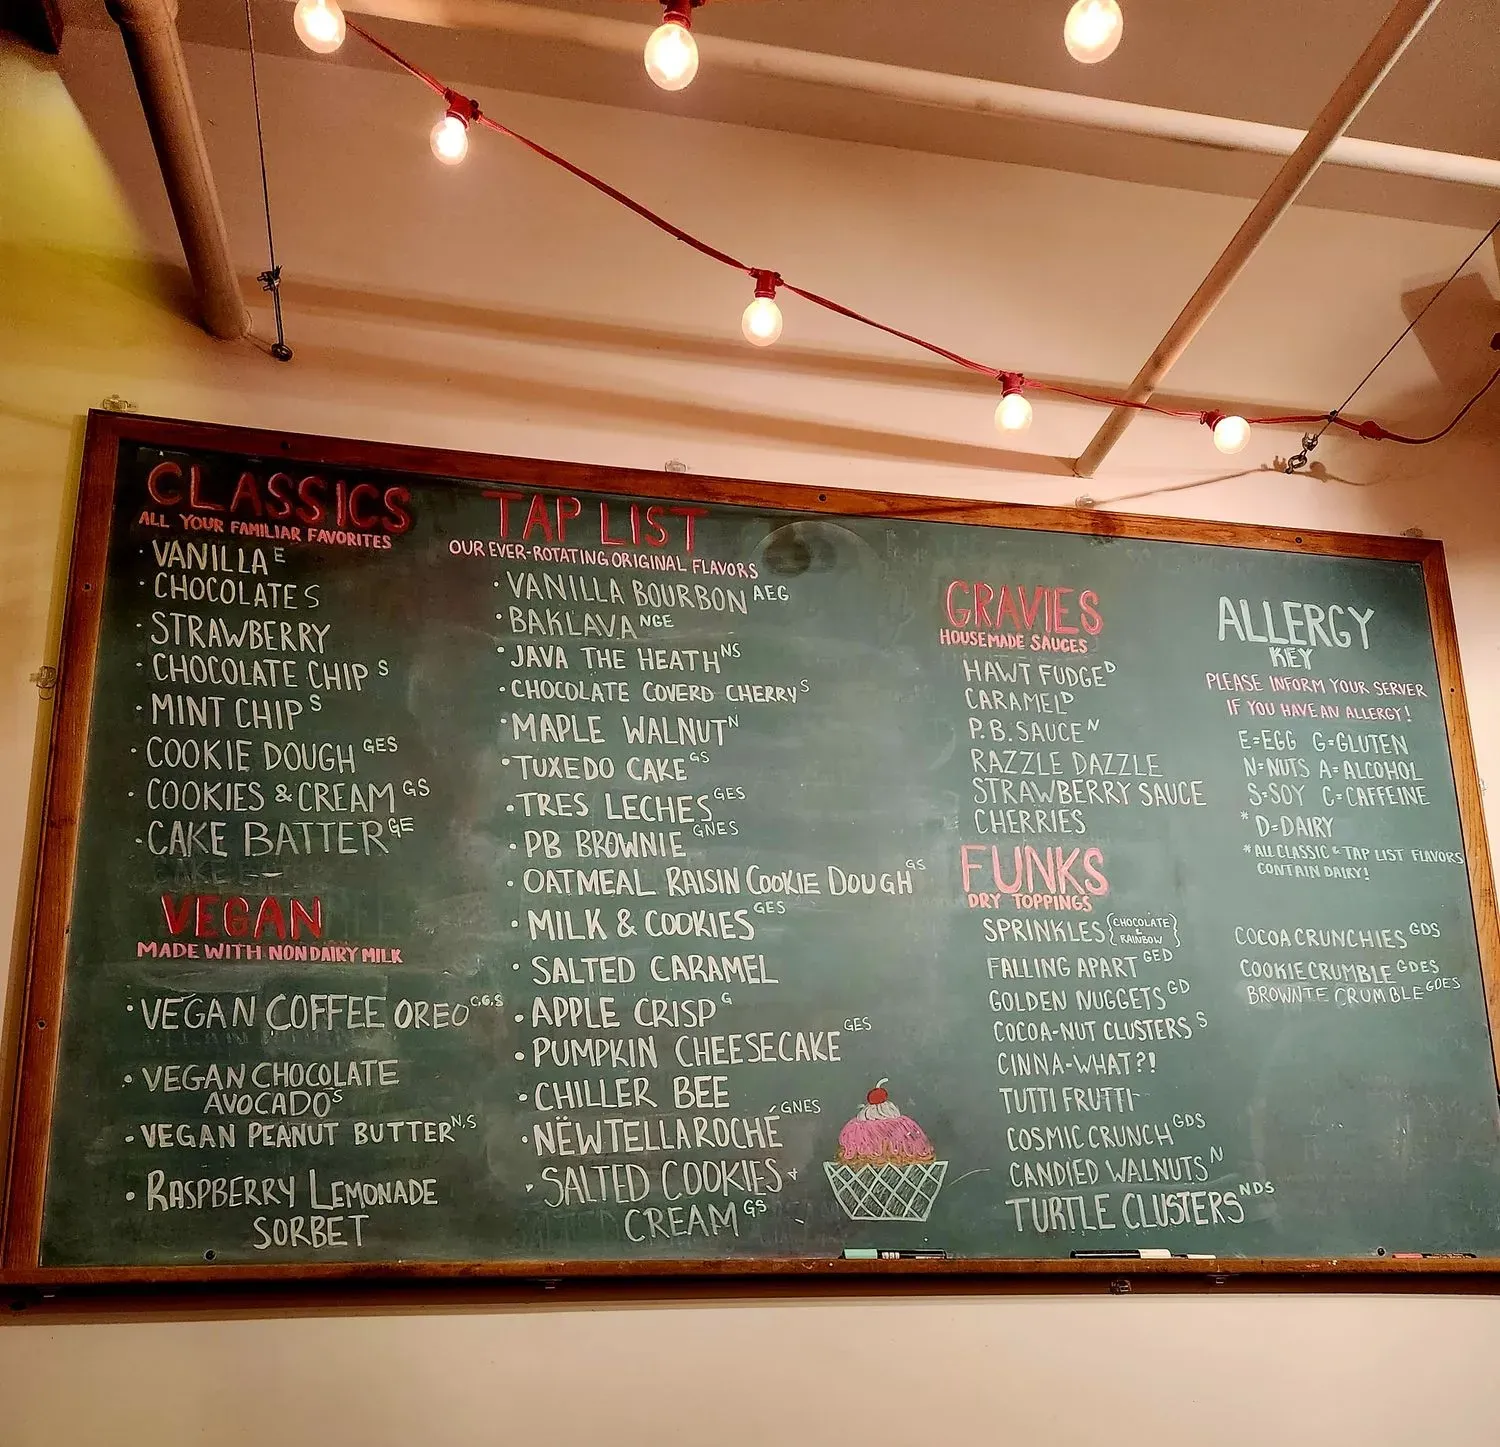 CLASSICS
ALL YOUR FAMILIAR FAVORITES
· VANILLA E
· CHOCOLATE S
· STRAWBERRY
· CHOCOLATE CHIP S
· MINT CHIP S
· COOKIE DOUGH GES
· COOKIES & CREAM GS
· CAKE BATTER GE
VEGAN
MADE WITH NONDAIRY MILK
· VEGAN COFFEE OREO C,G,S
· VEGAN CHOCOLATE
AVOCADO S
· VEGAN PEANUT BUTTER N,S
· RASPBERRY LEMONADE
SORBET
TAP LIST
OUR EVER-ROTATING ORIGINAL FLAVORS
· VANILLA BOURBON AEG
· BAKLAVA NGE
· JAVA THE HEATH NS
· CHOCOLATE COVERD CHERRY S
· MAPLE WALNUT N
· TUXEDO CAKE GS
· TRES LECHES GES
· PB BROWNIE GNES
· OATMEAL RAISIN COOKIE DOUGH GS
· MILK & COOKIES GES
· SALTED CARAMEL
· APPLE CRISP G
· PUMPKIN CHEESECAKE GES
· CHILLER BEE
· NËWTELLA ROCHÉ GNES
· SALTED COOKIES +
CREAM GS
GRAVIES
HOUSEMADE SAUCES
HAWT FUDGE D
CARAMEL D
P.B. SAUCE N
RAZZLE DAZZLE
STRAWBERRY SAUCE
CHERRIES
FUNKS
DRY TOPPINGS
SPRINKLES {CHOCOLATE & RAINBOW}
FALLING APART GED
GOLDEN NUGGETS GD
COCOA-NUT CLUSTERS S
CINNA-WHAT?!
TUTTI FRUTTI
COSMIC CRUNCH GDS
CANDIED WALNUTS N
TURTLE CLUSTERS NDS
ALLERGY
KEY
PLEASE INFORM YOUR SERVER
IF YOU HAVE AN ALLERGY!
E=EGG G=GLUTEN
N=NUTS A=ALCOHOL
S=SOY C=CAFFEINE
* D=DAIRY
* ALL CLASSIC & TAP LIST FLAVORS
CONTAIN DAIRY!
COCOA CRUNCHIES GDS
COOKIE CRUMBLE GDES
BROWNIE CRUMBLE GDES